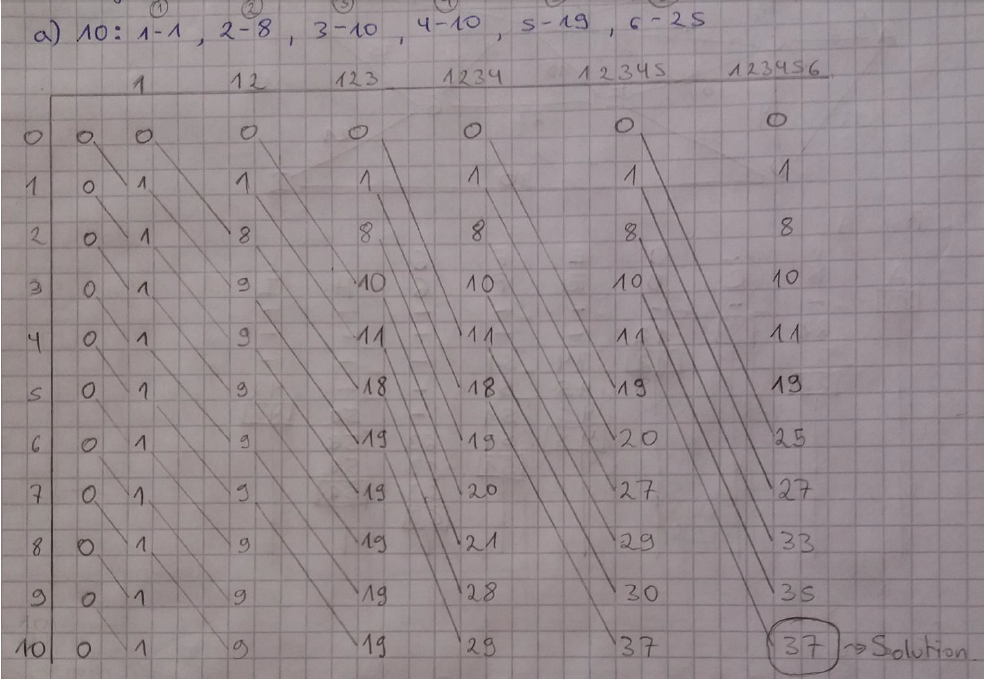 ① ② ③ ④
a) 10: 1-1 , 2-8 , 3-10 , 4-10 , 5-19 , 6-25
1 12 123 1234 12345 123456
0 0 0 0 0 0 0 0
1 0 1 1 1 1 1 1
2 0 1 8 8 8 8 8
3 0 1 9 10 10 10 10
4 0 1 9 11 11 11 11
5 0 1 9 18 18 19 19
6 0 1 9 19 19 20 25
7 0 1 9 19 20 27 27
8 0 1 9 19 21 29 33
9 0 1 9 19 28 30 35
10 0 1 9 19 29 37 37 → Solution